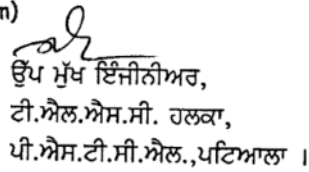 n)
ਉੱਪ ਮੁੱਖ ਇੰਜੀਨੀਅਰ,
ਟੀ.ਐਲ.ਐਸ.ਸੀ. ਹਲਕਾ,
ਪੀ.ਐਸ.ਟੀ.ਸੀ.ਐਲ.,ਪਟਿਆਲਾ ।